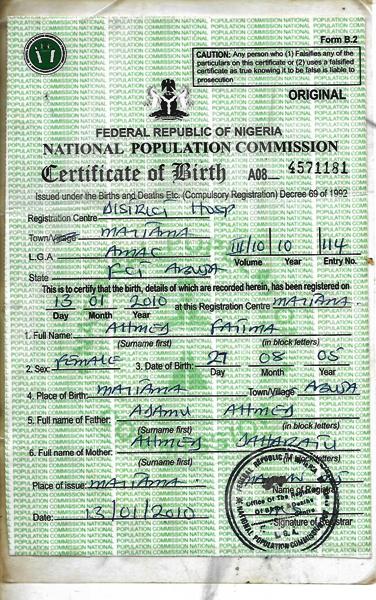 Form B.2
CAUTION: Any person who (1) Falsifies any of the
particulars on this certificate or (2) uses a falsified
certificate as true knowing it to be false is liable to
prosecution
ORIGINAL
FEDERAL REPUBLIC OF NIGERIA
NATIONAL POPULATION COMMISSION
Certificate of Birth A08 4571181
Issued under the Births and Deaths Etc. (Compulsory Registration) Decree 69 of 1992
Registration Centre DISTRICT HOSP
Town/Village MAITAMA
L.G.A AMAC III/10 10 114
Volume Year Entry No.
State FCT ABUJA
This is to certify that the birth, details of which are recorded herein, has been registered on
13 01 2010 at this Registration Centre MAITAMA
Day Month Year
1. Full Name: AHMED FATIMA
(Surname first) (in block letters)
2. Sex: FEMALE 3. Date of Birth: 27 08 05
Day Month Year
4. Place of Birth: MAITAMA Town/Village ABUJA
5. Full name of Father: ADAMU AHMED
(Surname first) (in block letters)
6. Full name of Mother: AHMED
(Surname first) (in block letters)
Place of issue: MAITAMA
Name of Registrar
Date: 13/01/2010
Signature of Registrar